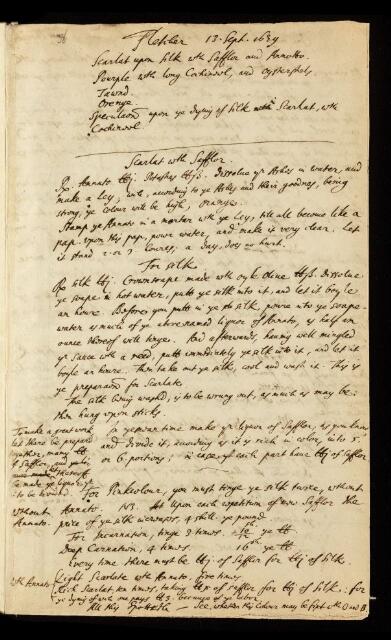 Fletcher 13. Sept. 1634
Scarlat upon silk wth Safflor and Annotto.
Pourple wth long Cochineel, and oystershels,
Tawnd.
Orenge.
Speculaōn upon ye dying of silk Scarlat, wth
Cochineel
Scarlat wth Safflor.
Rx. Annato tbj. Potashes tbjß. Dissolve yr Ashes in water, and
make a Ley, and, according to ye Ashes and their goodnes, being
strong, ye colour will be high, orange.
Stamp ye Annato in a morter wth ye Ley, till all become like a
pap. upon this pap. powre water, and make it very clear. Let
it stand 2. or 3 houres, a day, does no hurt.
For silk
Rx silk tbj. Crownsope made wth oyle olive tbß. Dissolve
ye soape in hot water, putt ye silk into it, and let it boyle
an houre. Before you putt in ye silk, powre into ye soape-
water as much of ye abovenamed liquor of Annato, as half an
ounce thereof will tinge. And afterwards, having well mingled
yr sauce with a reed, putt immediately ye silk into it, and let it
boyle an houre. Then take out ye silk, cool and wash it. This is
ye preparaōn for Scarlate.
The silk being washed, is to be wrung out, as much as may be:
then hung upon sticks.
In ye mean time make yr liquor of Safflor, as you know
and divide it, according as it is rich in color, into 5.
or 6. portions; in case of each part have tbj of safflor
To make a great work
let there be prepared
together, many tb
of Safflor, and
thereof
be made ye liquor
to be divided.
For Pinkcolour, you must tinge ye silk twice, without
Annato. NB. At upon each repetition of new Safflor the
price of ye silk increases, 4 shill. ye pound.
without
Annato.
For Incarnation, tinge 3 times. 12 sh. ye tb
Deap Carnation, 4 times. 16 sh. ye tb
Every time there must be tbj. of safflor for tbj of silk.
wth Annato
Light Scarlate wth Annato. five times.
Rich Scarlat ten times, taking tbx of safflor for tbj of silk. : for
ye dying of wch one payes tb 3. because of ye labor.
All this See, whether this colour may be kept